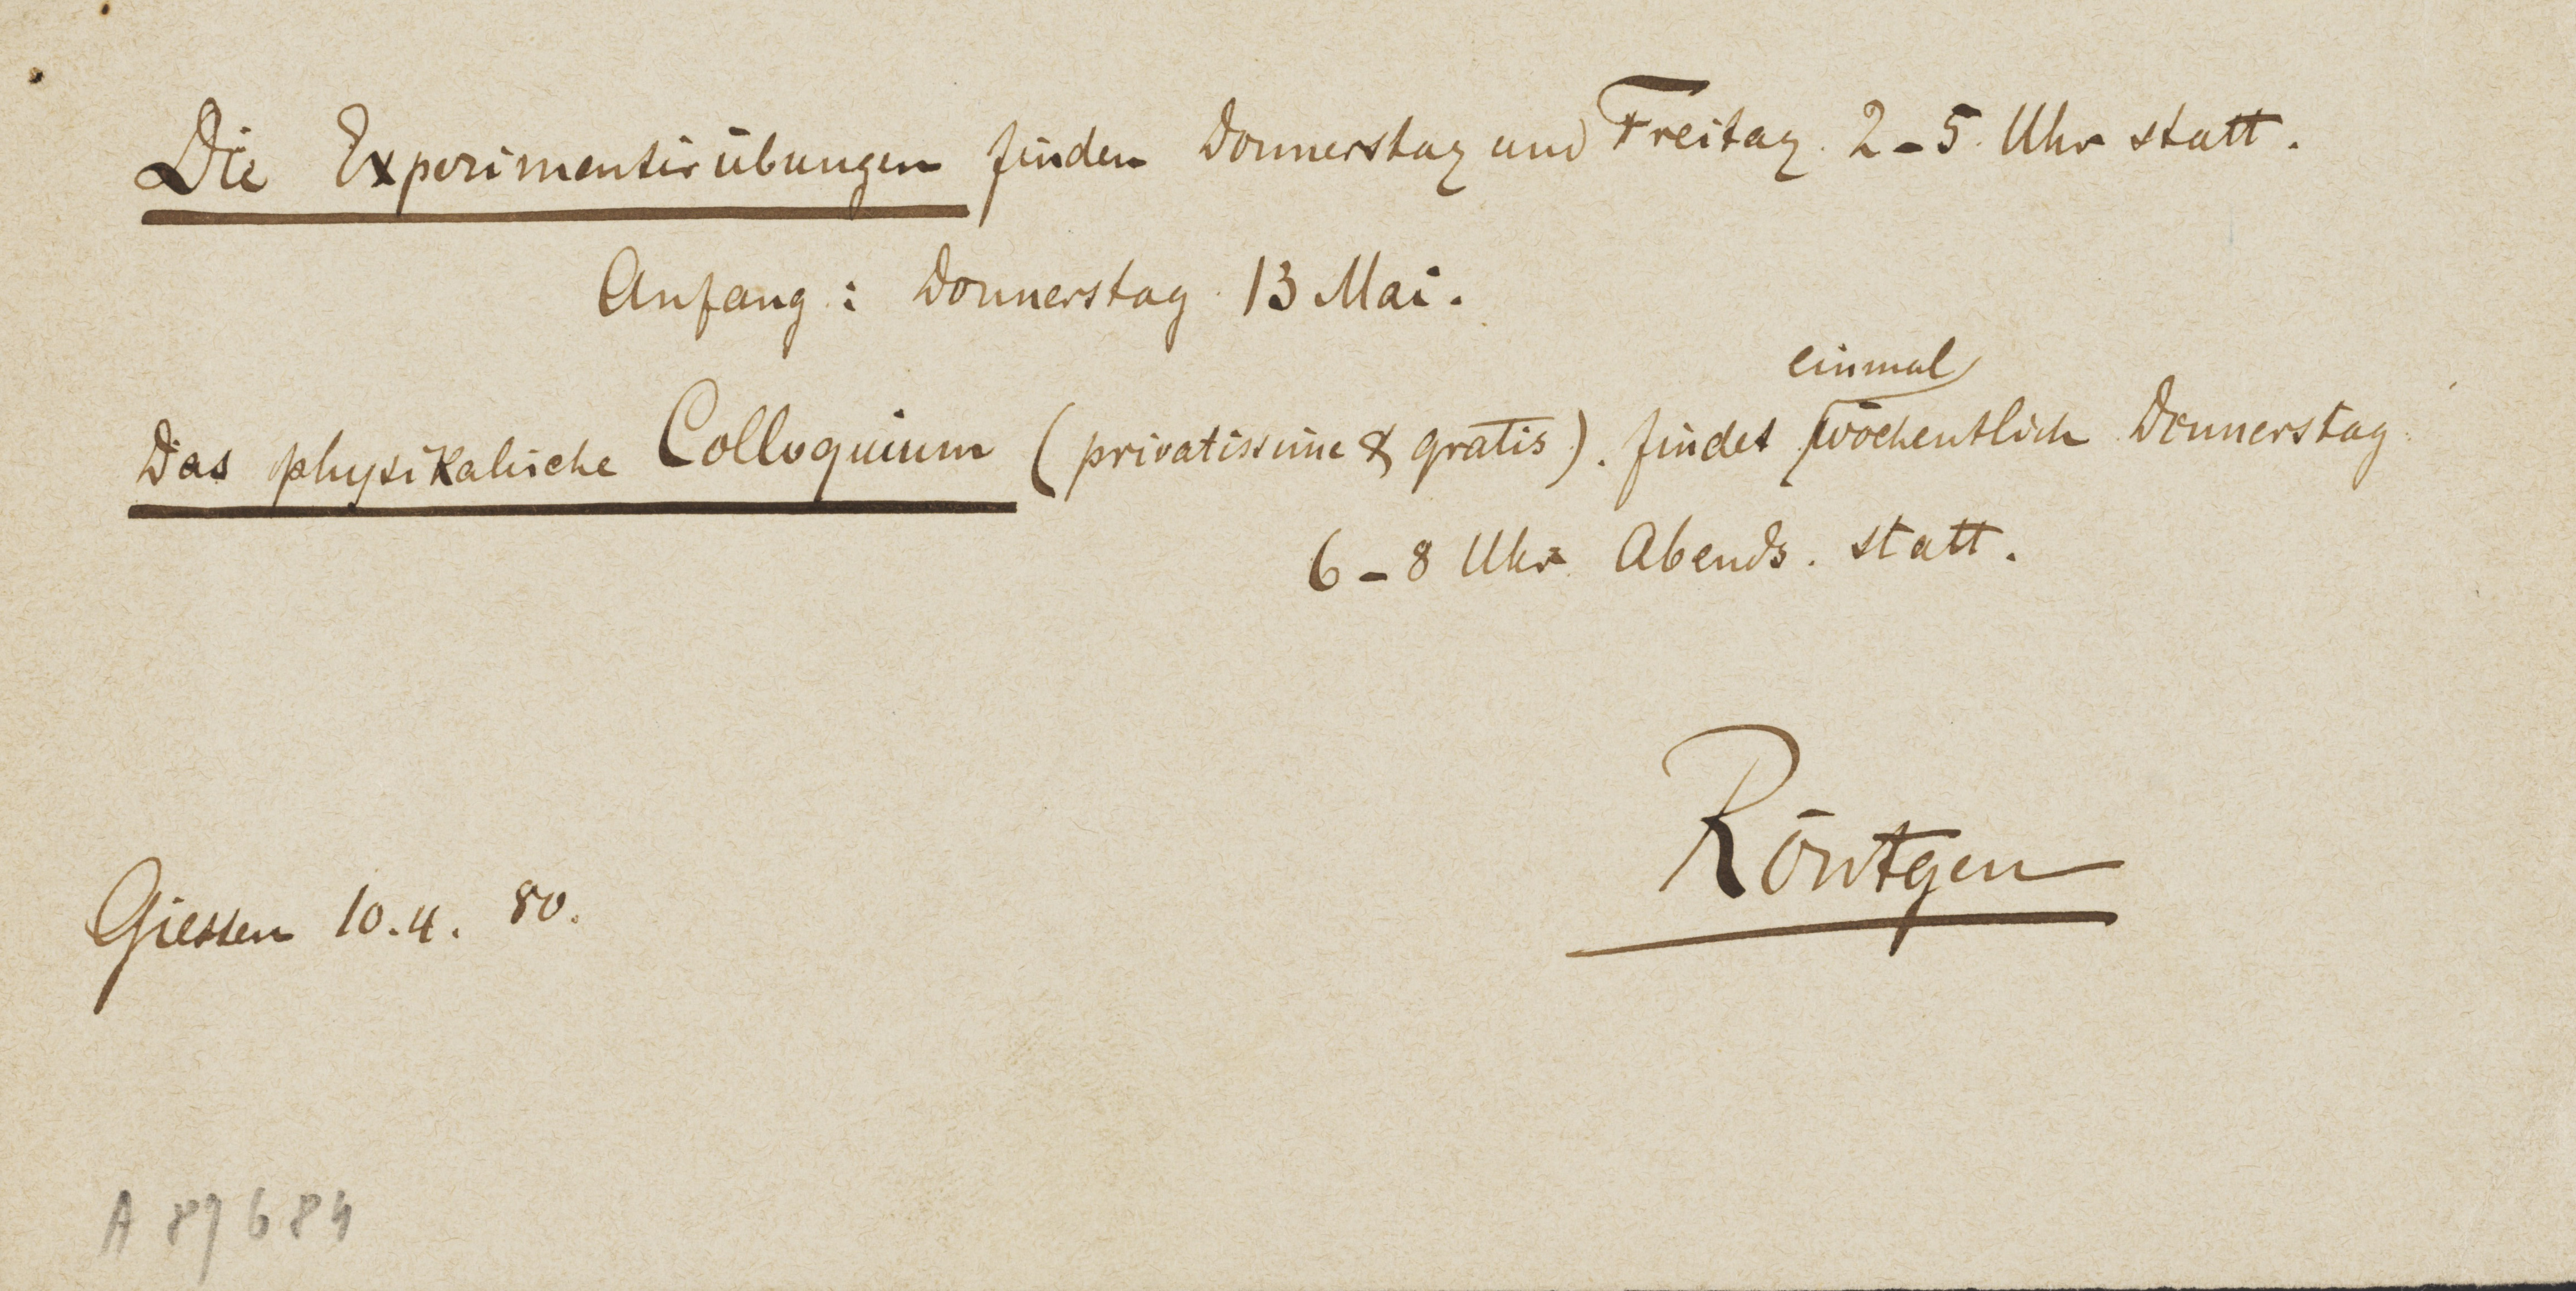 Die Experimentirübungen finden Donnerstag und Freitag. 2-5. Uhr statt.
Anfang: Donnerstag 13 Mai.
einmal
Das physikalische Colloquium (privatissime & gratis). findet wöchentlich Donnerstag
6-8 Uhr Abends. statt.
Röntgen
Giessen 10.4. 80.
A 89684